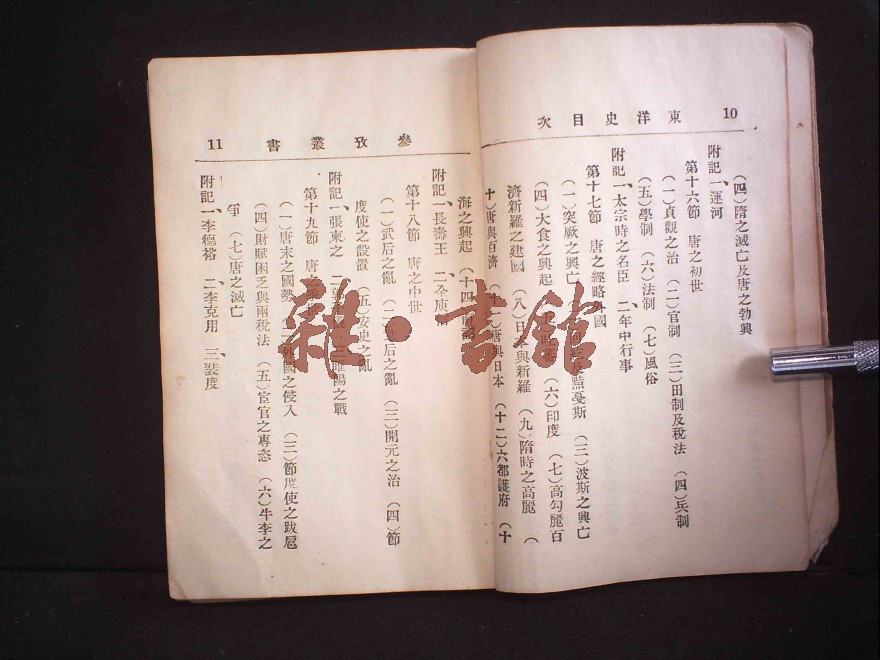 10
東洋史目次
(四)隋之滅亡及唐之勃興
附記 一、運河
第十六節 唐之初世
(一)貞觀之治 (二)官制 (三)田制及稅法 (四)兵制
(五)學制 (六)法制 (七)風俗
附記 一、太宗時之名臣 二、年中行事
第十七節 唐之經略 國
(一)突厥之興亡 及黠戛斯 (三)波斯之興亡
(四)大食之興起 (六)印度 (七)高勾麗百
濟新羅之建國 (八)日 與新羅 (九)隋時之高麗 (
十)唐與百濟 (十一)唐與日本 (十二)六都護府 (十
參攷叢書
11
海之興起 (十四)
附記 一、長壽王 二、金庾
第十八節 唐之中世
(一)武后之亂 (二) 后之亂 (三)開元之治 (四)節
度使之設置 (五)安史之亂
附記 一、張柬之 二、 睢陽之戰
第十九節 唐之 世
(一)唐末之國勢 (二)外國之侵入 (三)節度使之跋扈
(四)財賦困乏與兩稅法 (五)宦官之專恣 (六)牛李之
爭 (七)唐之滅亡
附記 一、李德裕 二、李克用 三、裴度
雜·書館